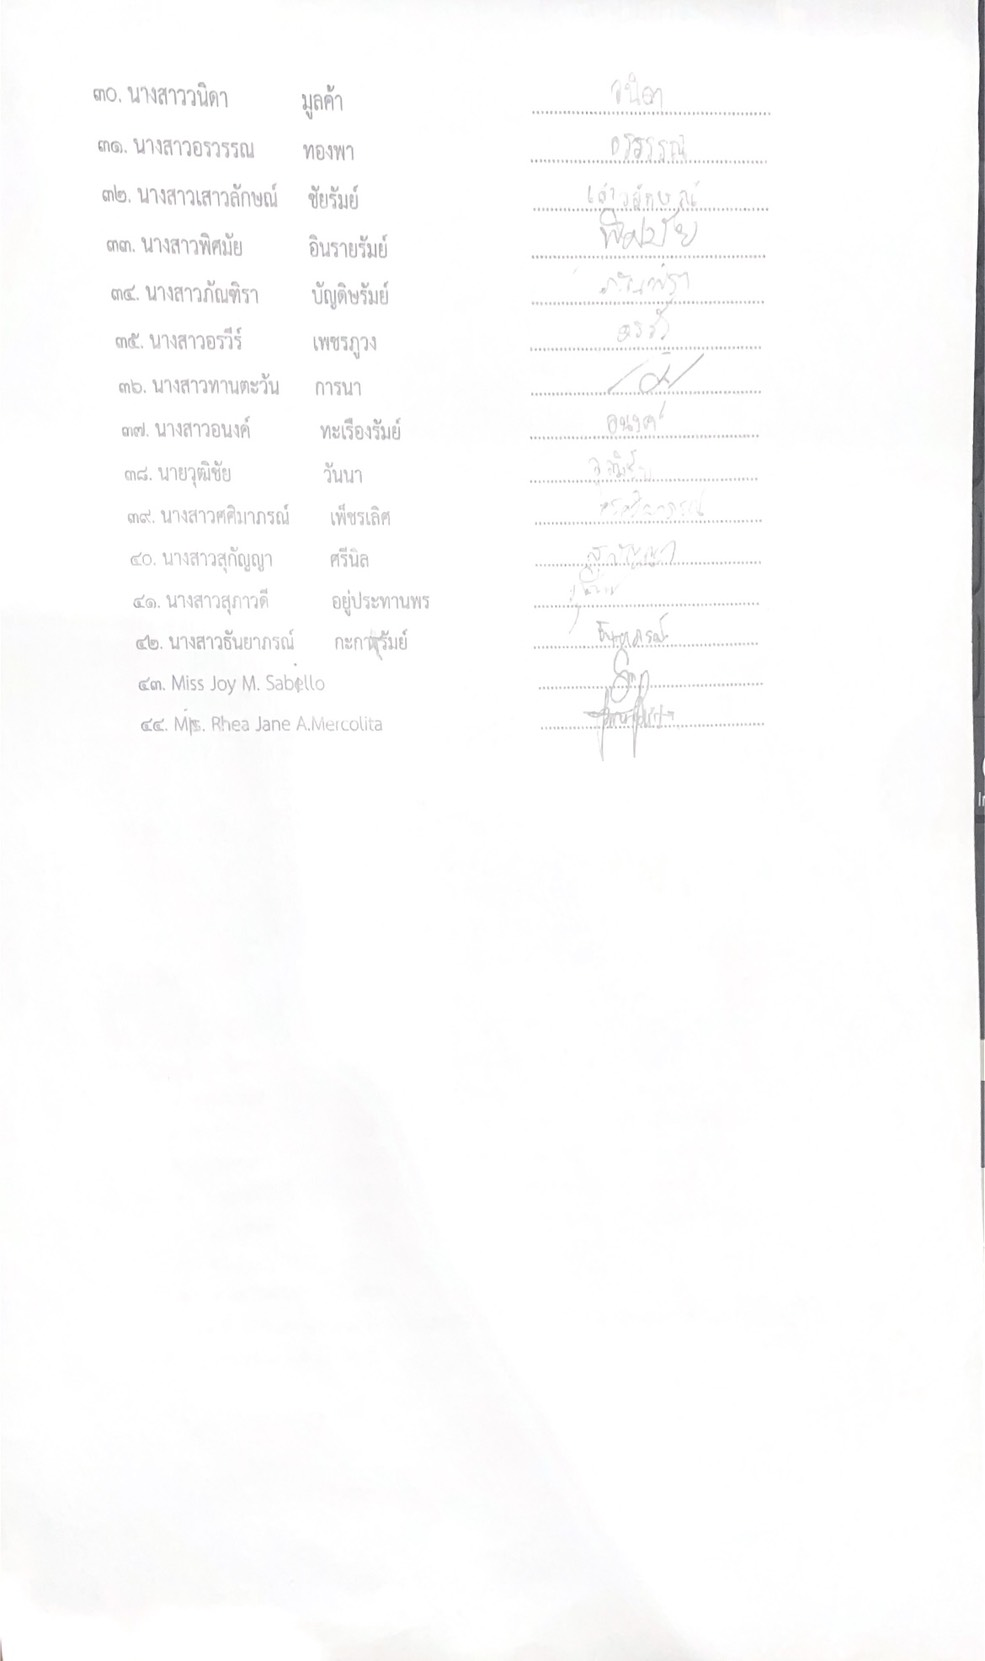 ๓๐. นางสาววนิดา มูลค้า วนิดา
๓๑. นางสาวอรวรรณ ทองพา อรวรรณ
๓๒. นางสาวเสาวลักษณ์ ชัยรัมย์ เสาวลักษณ์
๓๓. นางสาวพิศมัย อินรายรัมย์ พิศมัย
๓๔. นางสาวภัณฑิรา บัญดิษรัมย์ ภัณฑิรา
๓๕. นางสาวอรวีร์ เพชรภูวง
๓๖. นางสาวทานตะวัน การนา
๓๗. นางสาวอนงค์ ทะเรืองรัมย์ อนงค์
๓๘. นายวุฒิชัย วันนา
๓๙. นางสาวศศิมาภรณ์ เพ็ชรเลิศ
๔๐. นางสาวสุกัญญา ศรีนิล สุกัญญา
๔๑. นางสาวสุภาวดี อยู่ประทานพร
๔๒. นางสาวธันยาภรณ์ ธันยาภรณ์
๔๓. Miss Joy M. Sabello
๔๔. Rhea Jane A.Mercolita